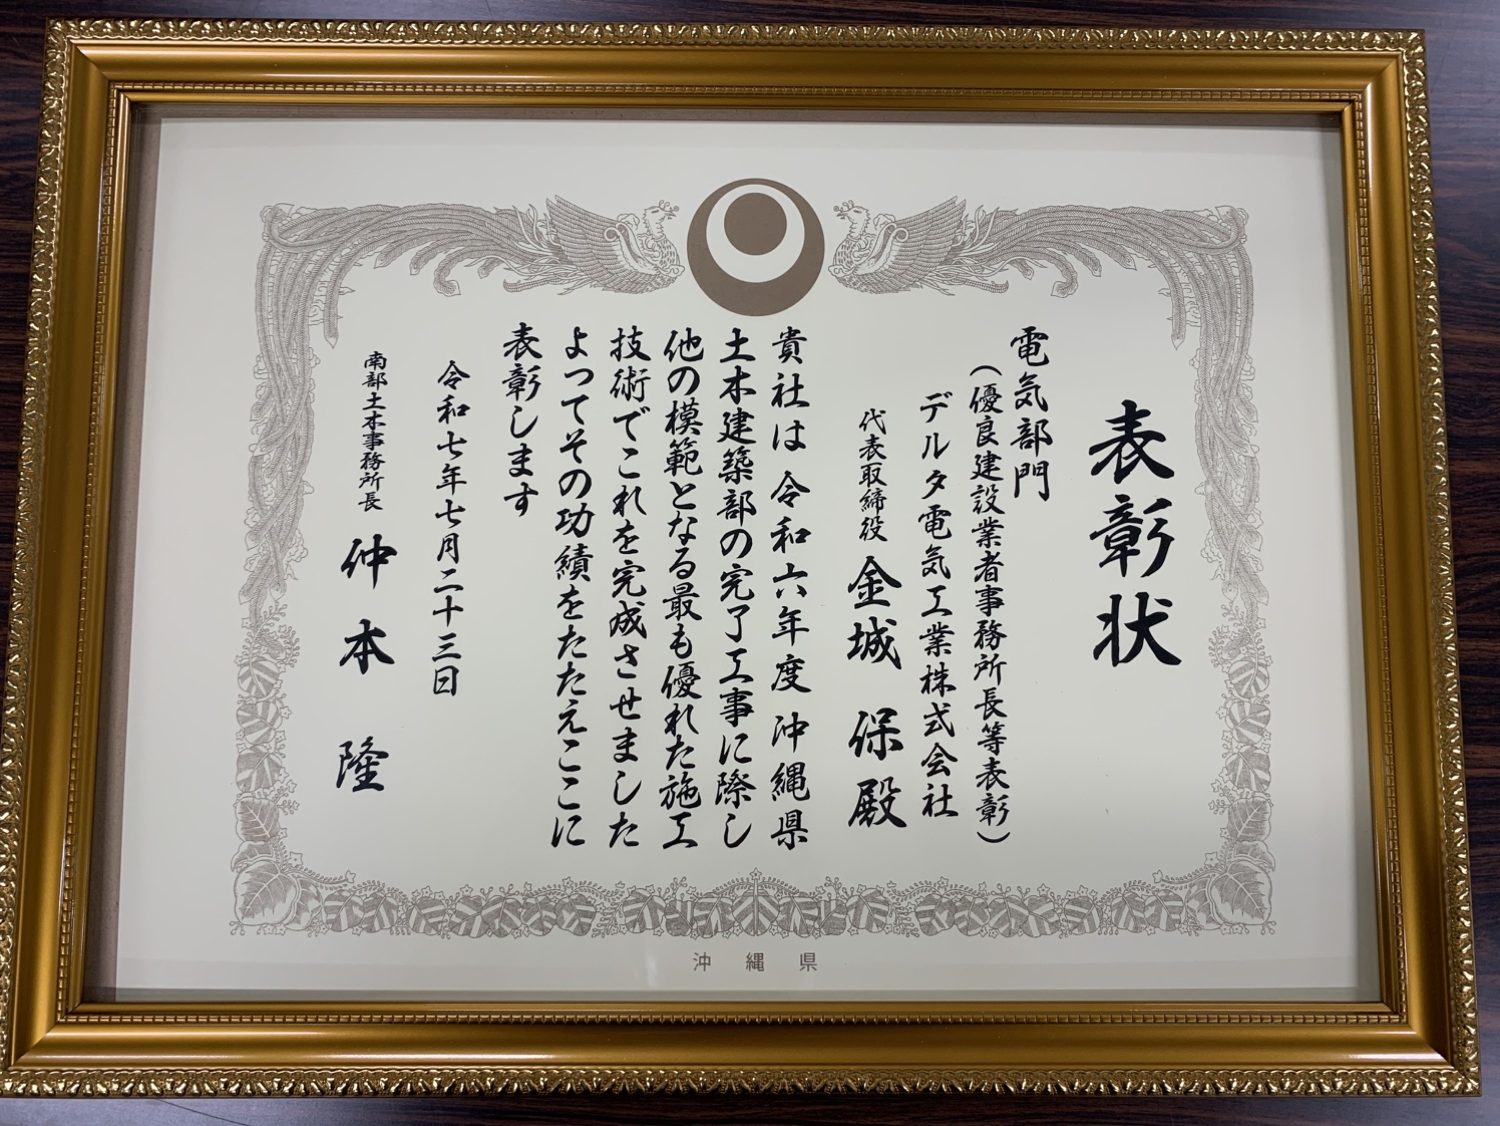 表彰状
電気部門
（優良建設業者事務所長等表彰）
デルタ電気工業株式会社
代表取締役 金城 保 殿
貴社は令和六年度沖縄県
土木建築部の完了工事に際し
他の模範となる最も優れた施工
技術でこれを完成させました
よってその功績をたたえここに
表彰します
令和七年七月二十三日
南部土木事務所長 仲本 隆
沖縄県